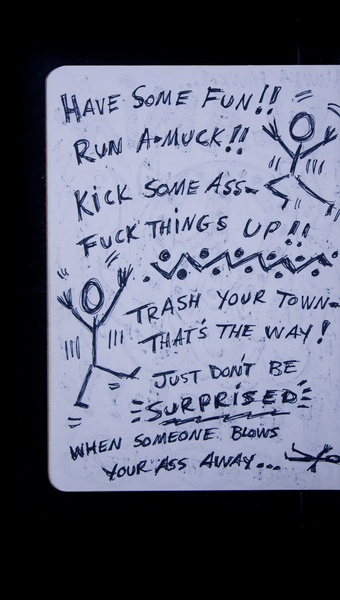 HAVE SOME FUN!!
RUN A-MUCK!!
KICK SOME ASS-
FUCK THINGS UP!!
TRASH YOUR TOWN-
THAT'S THE WAY!
JUST DON'T BE
SURPRISED
WHEN SOMEONE BLOWS
YOUR ASS AWAY...